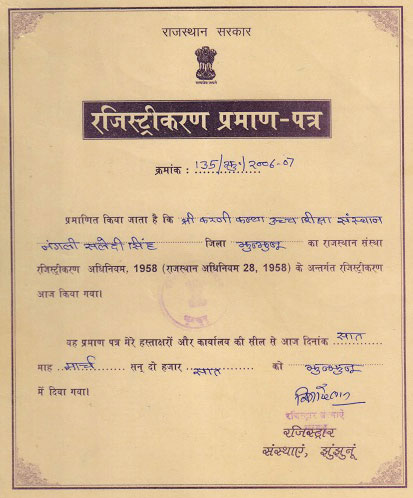 राजस्थान सरकार
रजिस्ट्रीकरण प्रमाण-पत्र
क्रमांक : 135/झुं/2006-07
प्रमाणित किया जाता है कि श्री करणी कन्या उच्च शिक्षा संस्थान
नंगली सलेदी सिंह जिला झुन्झुनू का राजस्थान संस्था
रजिस्ट्रीकरण अधिनियम, 1958 (राजस्थान अधिनियम 28, 1958) के अन्तर्गत रजिस्ट्रीकरण
आज किया गया।
यह प्रमाण पत्र मेरे हस्ताक्षरों और कार्यालय की सील से आज दिनांक सात
माह मार्च सन् दो हजार सात को झुन्झुनू
में दिया गया।
रजिस्ट्रार
संस्थाएं, झुंझुनूं